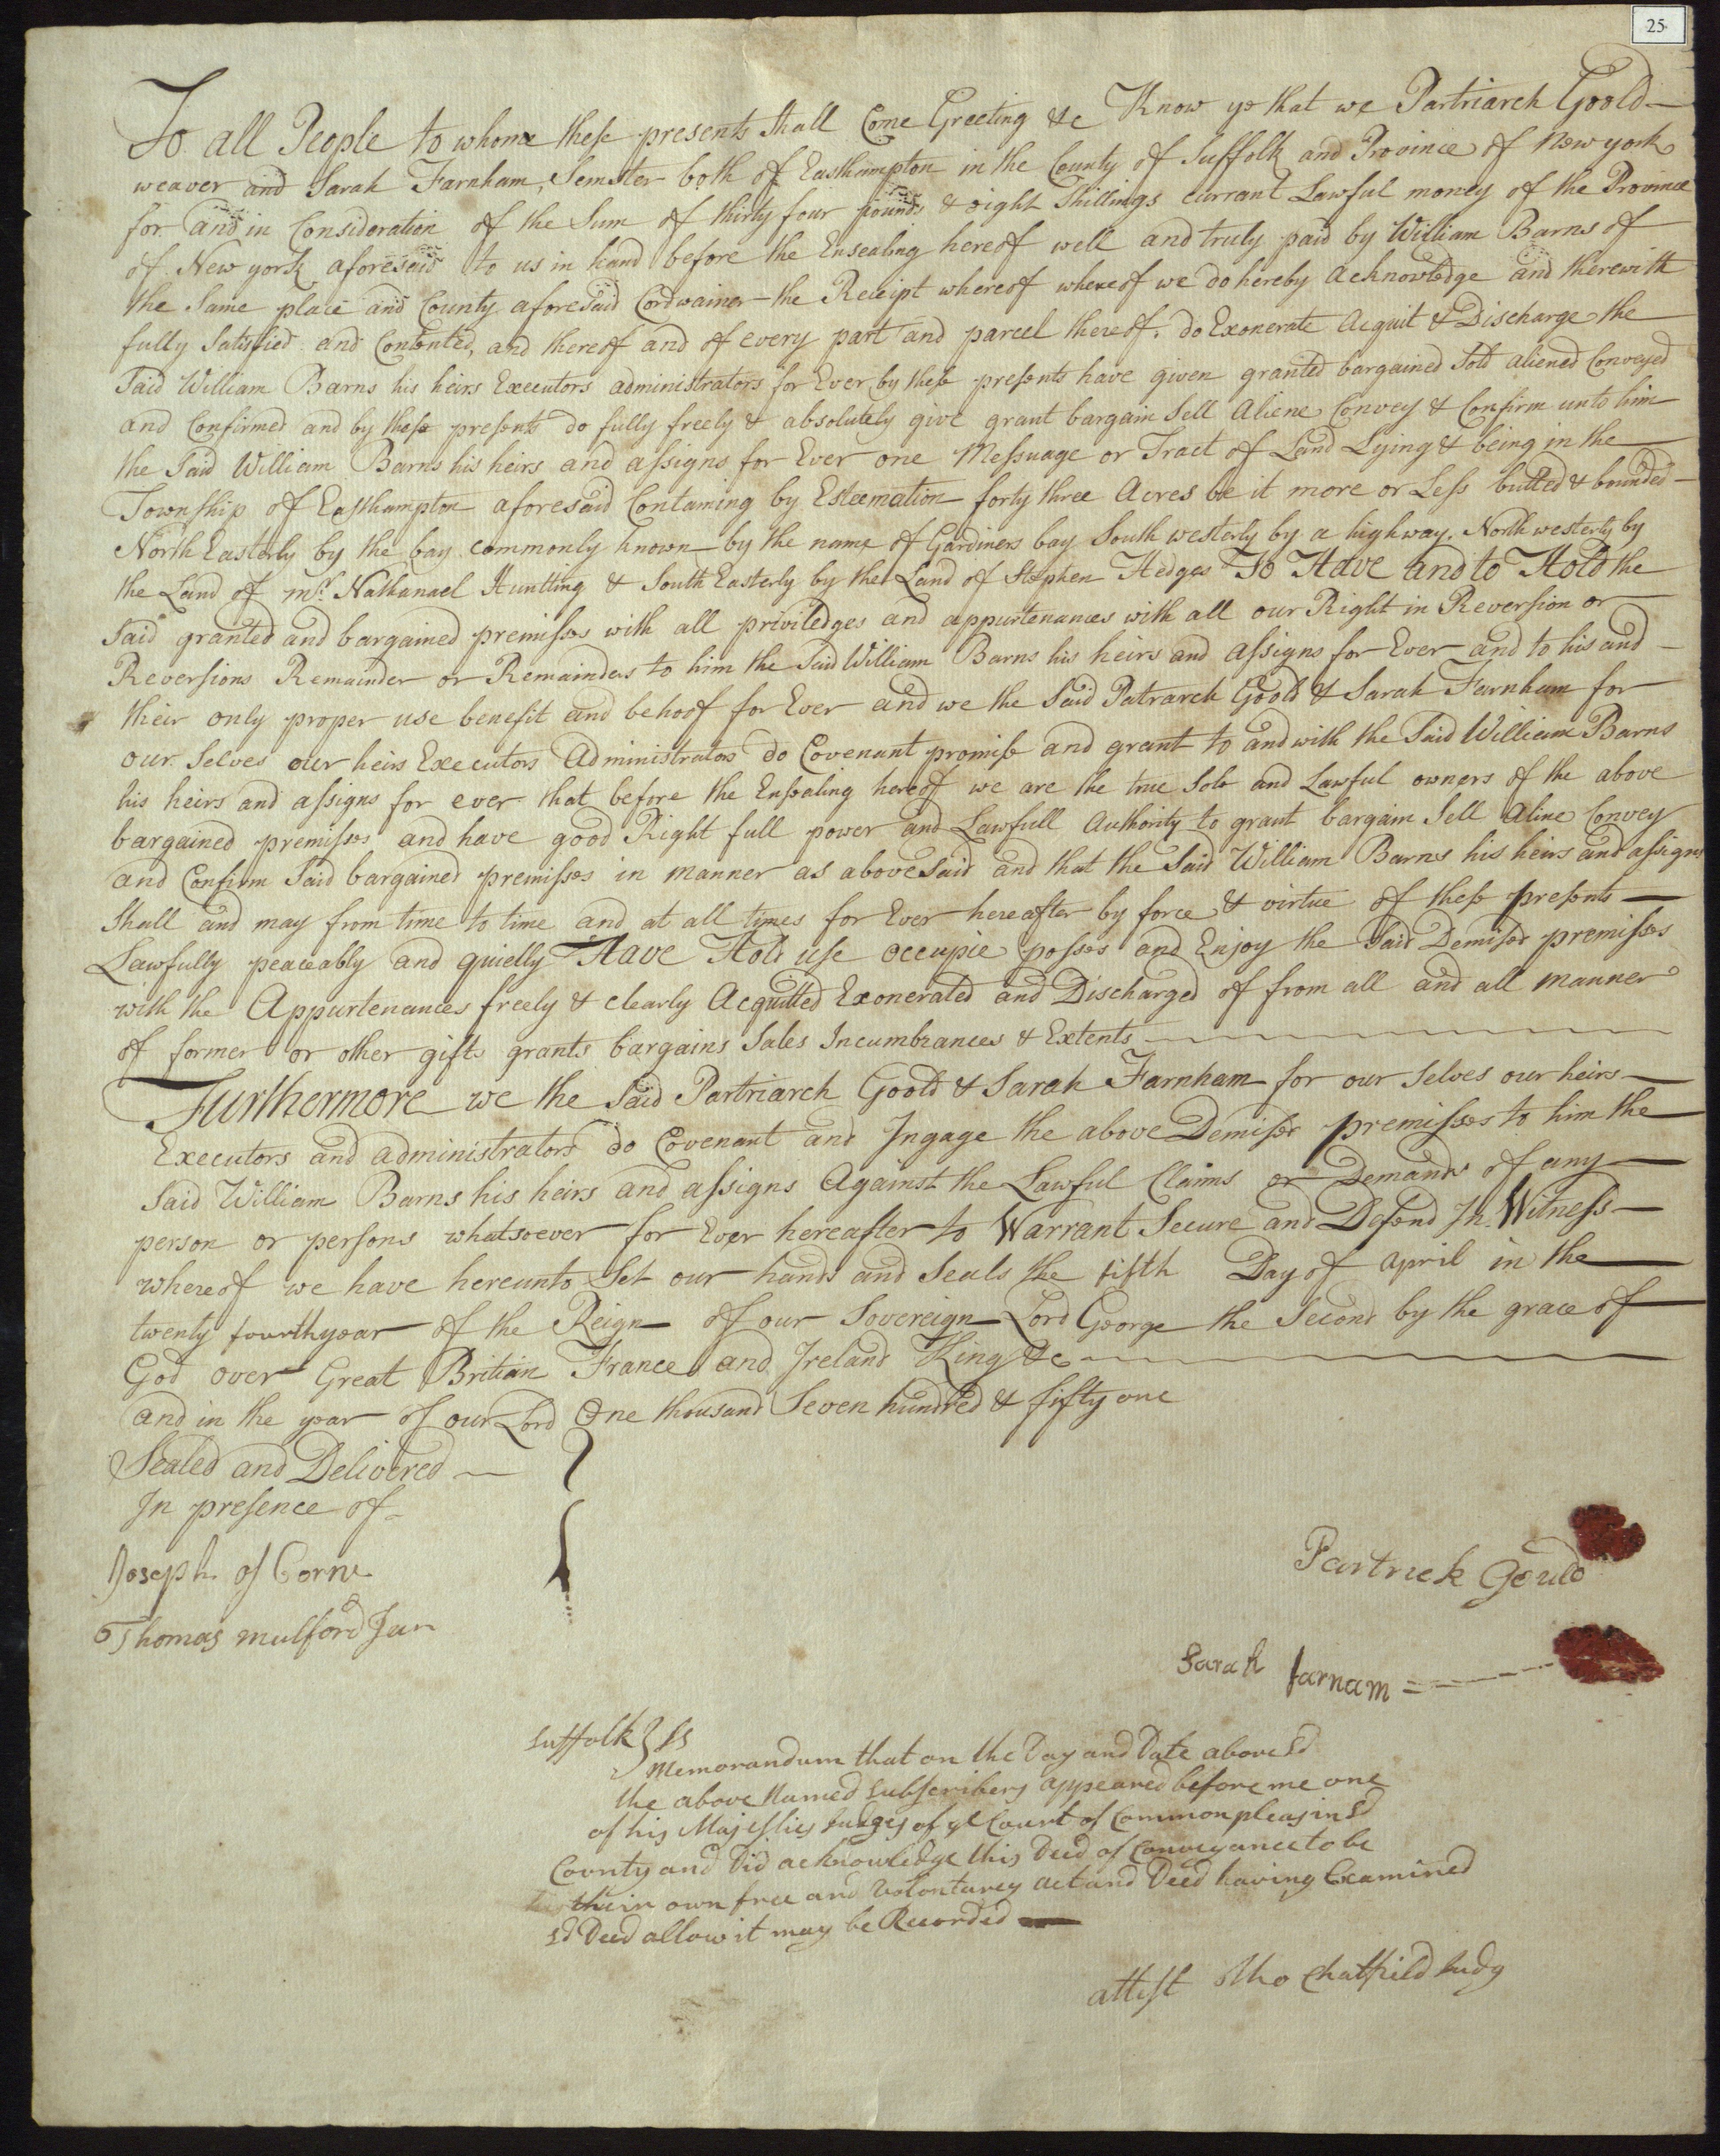 25
To all People to whome these presents shall Come Greeting &c Know ye that we Partriarch Goold
weaver and Sarah Farnham, Semster both of Easthampton in the County of Suffolk and Province of New york
for and in Consideration of the Sum of thirty four pounds & eight Shillings currant Lawful money of the Province
of New york aforesaid to us in hand before the Ensealing hereof well and truly paid by William Barns of
the Same place and County aforesaid Cordwainer the Receipt whereof whereof we do hereby acknowledge and therewith
fully Satisfied and Contented, and thereof and of every part and parcel thereof, do Exonerate Acquit & Discharge the
Said William Barns his heirs Executors administrators for Ever by these presents have given granted bargained Sold aliened Conveyed
and Confirmed and by these presents do fully freely & absolutely give grant bargain Sell Aliene Convey & Confirm unto him
the Said William Barns his heirs and assigns for Ever one Messuage or Tract of Land Lying & being in the
Township of Easthampton aforesaid Containing by Esteemation forty three Acres be it more or Less butted & bounded
North Easterly by the bay commonly known by the name of Gardiners bay South westerly by a highway. North westerly by
the Land of mr. Nathanael Huntting & South Easterly by the Land of Stephen Hedges To Have and to Hold the
Said granted and bargained premisses with all priviledges and appurtenances with all our Right in Reversion or
Reversions Remainder or Remainders to him the Said William Barns his heirs and assigns for Ever and to his and
their only proper use benefit and behoof for Ever and we the Said Patrarch Goold & Sarah Farnham for
our Selves our heirs Executors Administrators do Covenant promise and grant to and with the Said William Barns
his heirs and assigns for ever that before the Ensealing hereof we are the true Sole and Lawful owners of the above
bargained premisses and have good Right full power and Lawfull Authority to grant bargain Sell Aline Convey
and Confirm Said bargained premisses in manner as above Said and that the Said William Barns his heirs and assigns
Shall and may from time to time and at all times for Ever hereafter by force & virtue of these presents
Lawfully peaceably and quietly Have Hold use occupie posses and Enjoy the Said Demised premisses
with the Appurtenances freely & clearly Acquitted Exonerated and Discharged of from all and all manner
of former or other gifts grants bargains Sales Incumbrances & Extents
Furthermore we the Said Partriarch Goold & Sarah Farnham for our Selves our heirs
Executors and administrators do Covenant and Ingage the above Demised premisses to him the
Said William Barns his heirs and assigns Against the Lawful Claims or Demands of any
person or persons whatsoever for Ever hereafter to Warrant Secure and Defend In Witness
whereof we have hereunto Set our hands and Seals the fifth Day of April in the
twenty fourth year of the Reign of our Sovereign Lord George the Second by the grace of
God over Great Britian France and Ireland King &c
and in the year of our Lord One thousand Seven hundred & fifty one
Sealed and Delivered
In presence of
Joseph os Corne
Thomas mulford Jun
Partrick Gould
Sarah farnam
Suffolk } ss
Memorandum that on the Day and Date above sd
the above Named subscribers appeared before me one
of his Majesties Judges of ye Court of Common pleas in sd
County and Did acknowledge this Deed of Conveyance to be
their own free and Volontarey act and Deed having Examined
sd Deed allow it may be Recorded
attest Tho Chatfield Judg